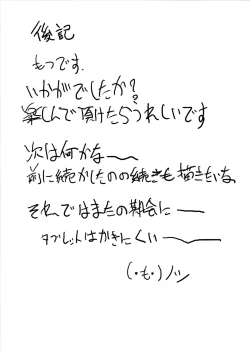 後記
もつです.
いかがでしたか?
楽しんで頂けたらうれしいです
次は何かな〜
前に続かしたのの続きも描きたいな
それではまたの期会に―
タブレットはかきにくい―
(・も・)ノシ